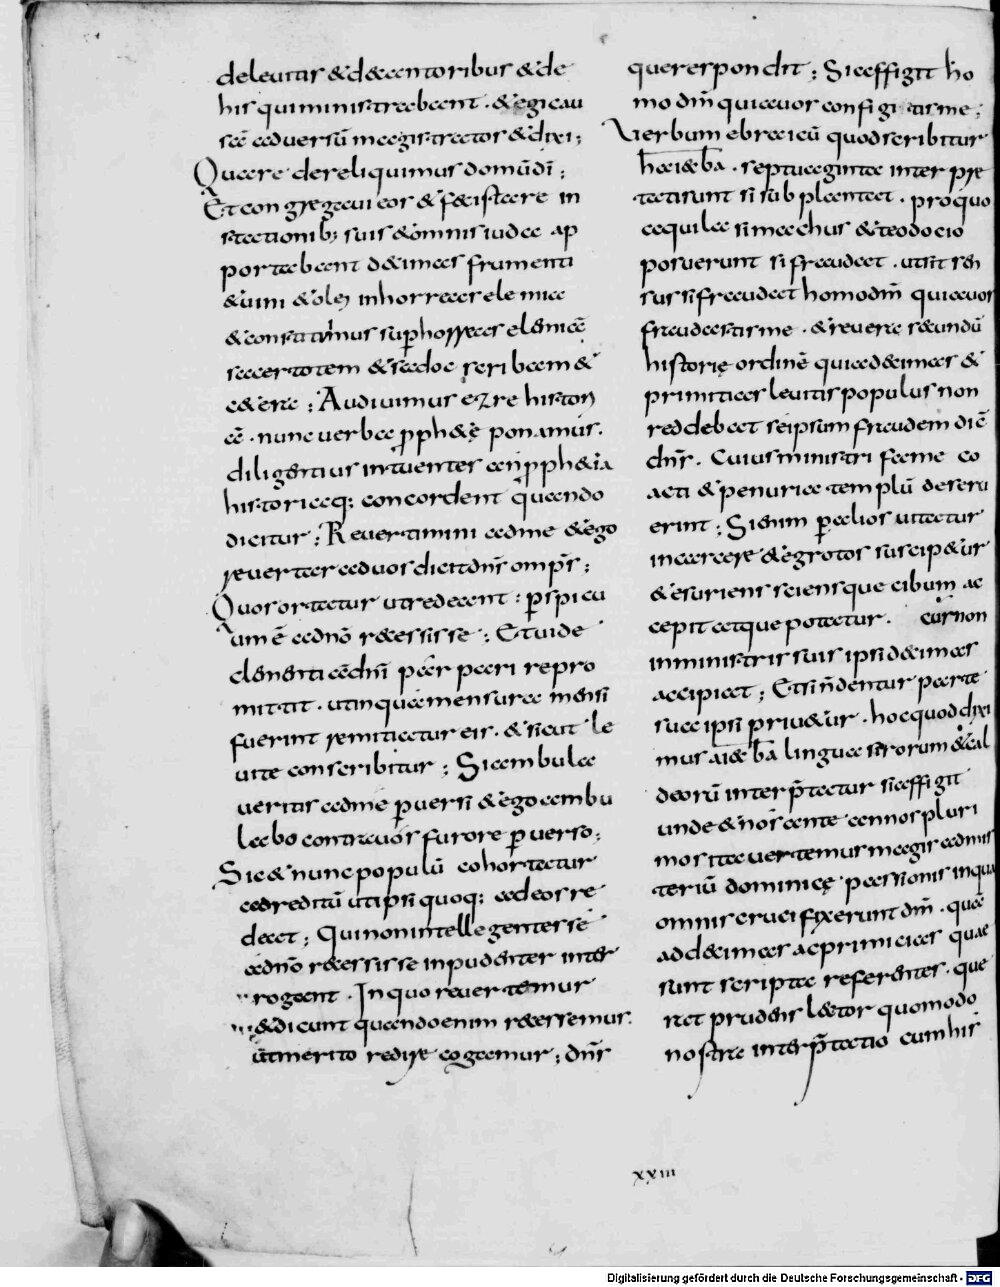 deleuitis & d&cantoribus & de
his quiministrabant · & egi cau
sā aduersū magistratos & dixi ;
Quare dereliquimus domū dī ;
Et congregaui eos & feci stare in
stationib; suis & omnis iuda ap
portabant decimas frumenti
& uini & olei inhorrea elemiae
& constituimus sup horrea elemiae
sacerdotem & sadoc scribam &
& ere ; Audiuimus ezre histori
ā · nunc uerba pph&ę ponamus ·
diligentius intuentes an pph&ia
historiaq; concordent quando
dicitur ; Reuertimini adme & ego
reuertar aduos dicit dn̄s omps ;
Quos ortatur utredeant : pspicu
um ē adnō recessisse ; Et uide
clementiā dn̄i paer pari repro
mittit · utin qua mensura mensi
fuerint remittatur eis · & sicut le
uite conscribitur ; Si ambula
ueritis adme puersi & ego ambu
labo contrauos furore puerso ;
Sic & nunc populū cohortatur
adreditū utipsi quoq; adeos re
deat ; Qui nonintellegentes se
adnō recessisse inpudenter inter
rogant · In quo reuertemur
& dicunt quando enim recessemus ·
ut merito redire cogamur ; dn̄s
querespondit ; Si affigit ho
mo dm̄ quia uos configitis me ;
Uerbum ebraicū quodscribitur
haieba · septuaginta interpre
tati sunt si subplantat · pro quo
aquila simachus & teodocio
posuerunt si fraudat · ut sit sen
sus si fraudat homo dm̄ quia uos
fraudastis me · & reuera secundū
historię ordinē quia decimas &
primitias leuitis populus non
reddebat seipsum fraudem diē
dn̄s · Cuius ministri fame co
acti & penuria templū deseru
erint ; Si enim p alios uitatur
incarcere & egrotos suscipi&ur
& esuriens sciensque cibum ac
cepit atque potatur · cur non
inministris suis ipsi decimas
accipiat ; Et si n̄ dentur parte
sua ipsi priu&ur · hoc quod dixi
mus aieba lingua sirorum & cal
deorū interp̄tatur si affigit
unde & nos ante annos pluri
mos ita uertemus magis admis
teriū dominicę passionis in qua
omnis crucifixerunt dm̄ · quā
ad decimas ac primicias quae
sunt scripta referentes · que
rat prudens lector quomodo
nostra interp̄tatio cum his
xxiii
Digitalisierung gefördert durch die Deutsche Forschungsgemeinschaft - DFG